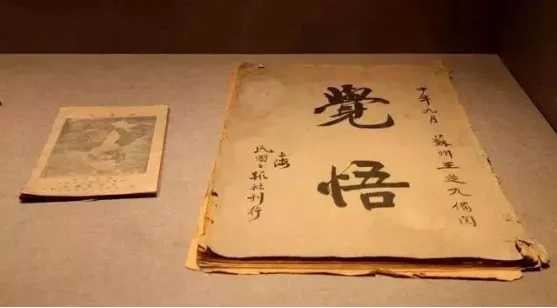 十年九月 蘇州王蓬九備閱
覺悟
上海
民國日報社刊行